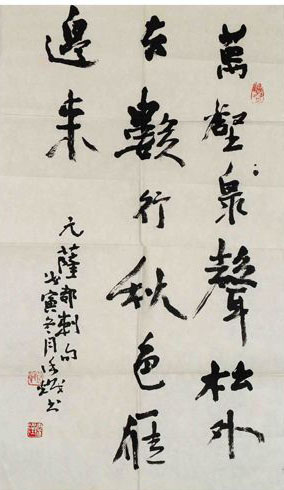 萬壑泉聲松外
去數行秋色雁
邊来
元薩都剌句
戊寅冬月书